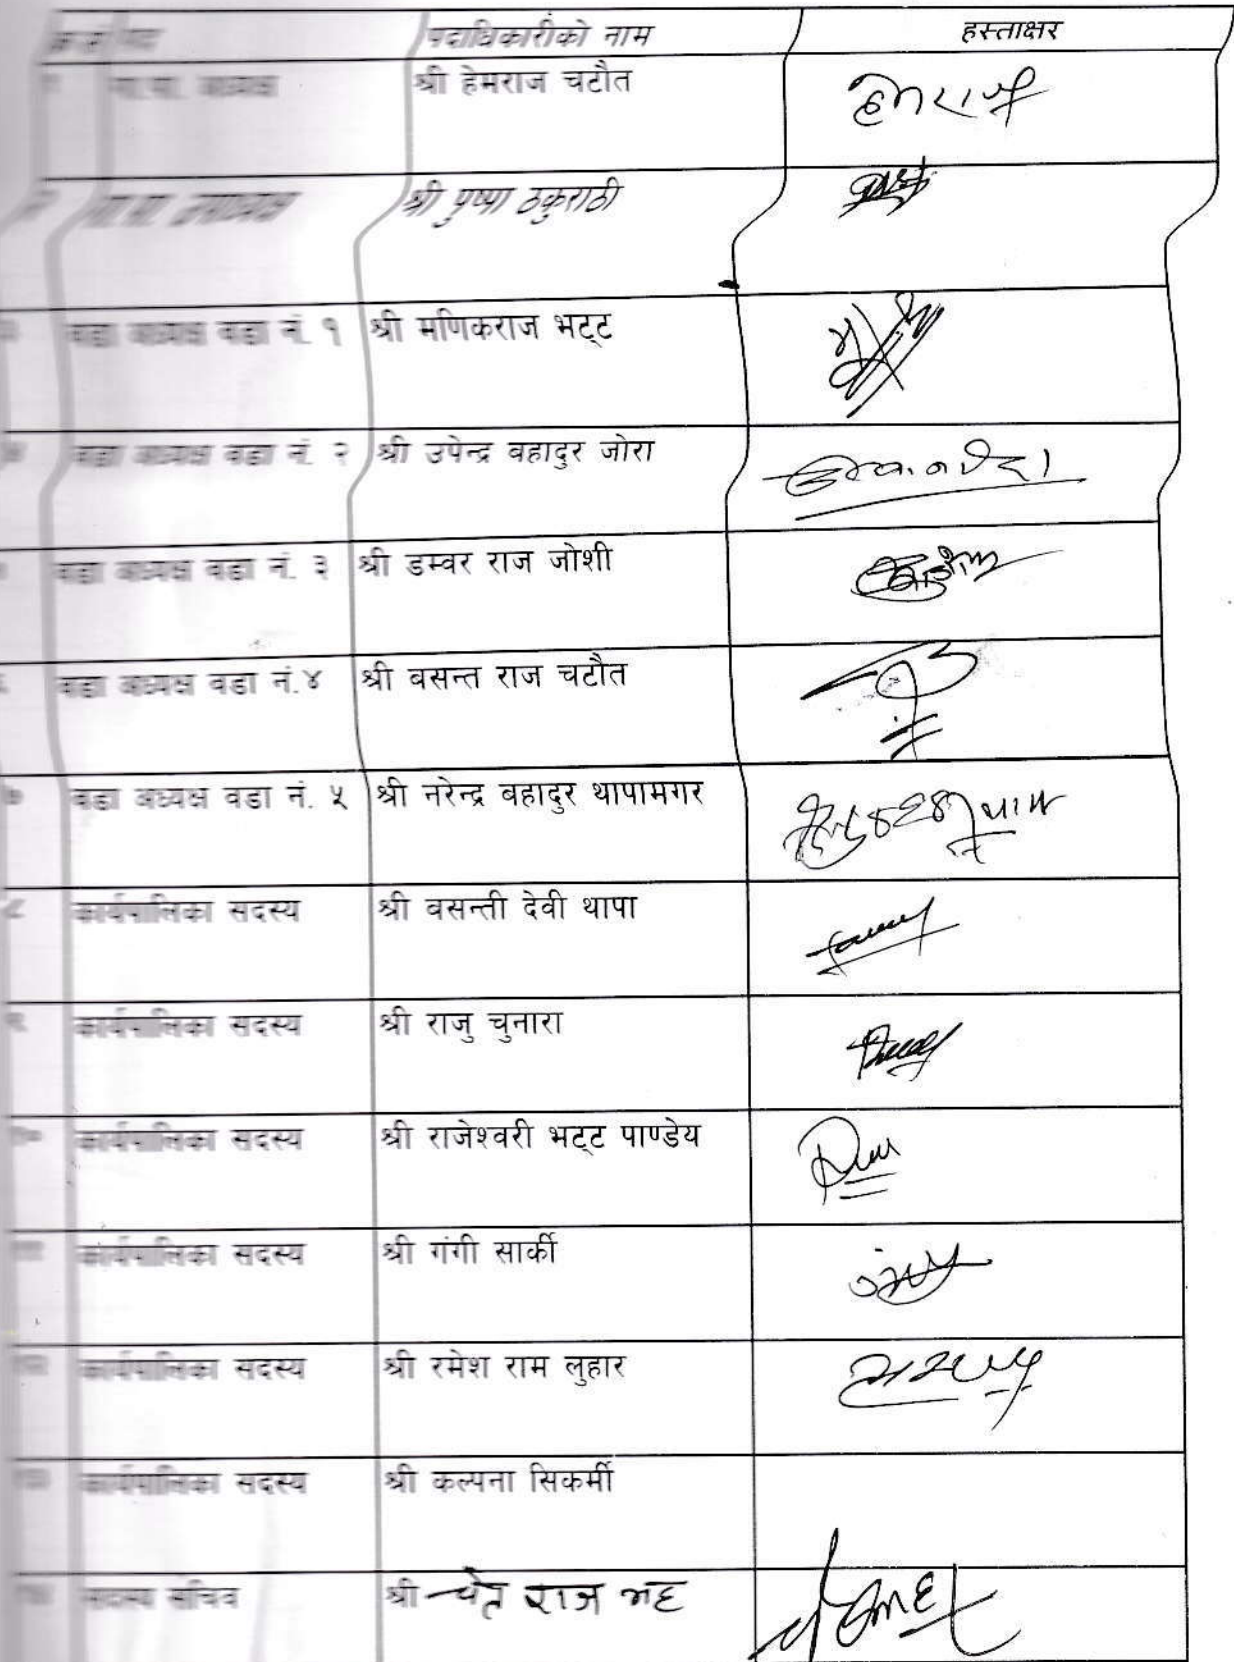 क्र.सं. पद पदाधिकारीको नाम हस्ताक्षर
१ गा.पा. अध्यक्ष श्री हेमराज चटौत हेमराज
२ गा.पा. उपाध्यक्ष श्री पुष्पा ठकुराठी
३ वडा अध्यक्ष वडा नं. १ श्री मणिकराज भट्ट
४ वडा अध्यक्ष वडा नं. २ श्री उपेन्द्र वहादुर जोरा
वडा अध्यक्ष वडा नं. ३ श्री डम्वर राज जोशी
वडा अध्यक्ष वडा नं.४ श्री वसन्त राज चटौत
७ वडा अध्यक्ष वडा नं. ५ श्री नरेन्द्र बहादुर थापामगर
८ कार्यपालिका सदस्य श्री वसन्ती देवी थापा
९ कार्यपालिका सदस्य श्री राजु चुनारा
१० कार्यपालिका सदस्य श्री राजेश्वरी भट्ट पाण्डेय
११ कार्यपालिका सदस्य श्री गंगी सार्की
१२ कार्यपालिका सदस्य श्री रमेश राम लुहार
१३ कार्यपालिका सदस्य श्री कल्पना सिकर्मी
१४ सदस्य सचिव श्री चेत राज भट्ट